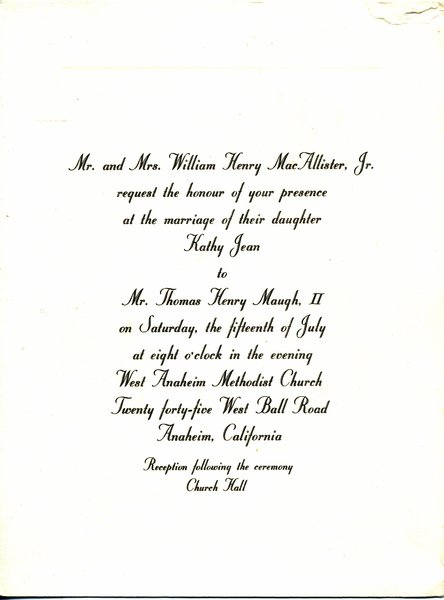 Mr. and Mrs. William Henry MacAllister, Jr.
request the honour of your presence
at the marriage of their daughter
Kathy Jean
to
Mr. Thomas Henry Maugh, II
on Saturday, the fifteenth of July
at eight o'clock in the evening
West Anaheim Methodist Church
Twenty forty-five West Ball Road
Anaheim, California
Reception following the ceremony
Church Hall